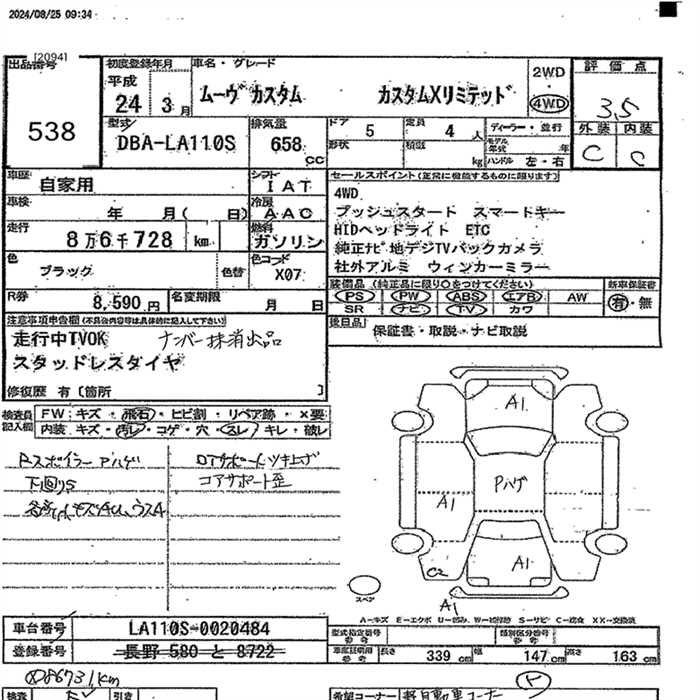 2024/08/25 09:34
[2094]
出品番号
538
初度登録年月
平成
24 3月
車名・グレード
ムーヴ カスタム カスタムXリミテッド
2WD
4WD
評価点
3.5
外装 内装
C C
型式
DBA-LA110S
排気量
658 cc
ドア
5
定員
4 人
形状
積載
kg
ディーラー・並行
モデル年式 年
ハンドル 左・右
車歴
自家用
シフト
IAT
車検
年 月( 日)
冷房
AAC
走行
8万6千728 km
燃料
ガソリン
色
ブラック
色替
色コード
X07
R券
8,590 円
名変期限
月 日
セールスポイント(正常に機能するものに限ります)
4WD
プッシュスタート スマートキー
HIDヘッドライト ETC
純正ナビ 地デジTVバックカメラ
社外アルミ ウィンカーミラー
装備品(純正品に限り○をつけてください)
PS PW ABS エアB AW
SR ナビ TV カワ
新車保証書
有・無
後日品
保証書・取説・ナビ取説
注意事項申告欄(不具合内容等は具体的に記入して下さい)
走行中TVOK ナンバー抹消出品
スタッドレスタイヤ
修復歴 有〔箇所 〕
検査員記入欄
FW:キズ・飛石・ヒビ割・リペア跡・×要
内装 キズ・汚レ・コゲ・穴・スレ・キレ・破レ
Rスポイラー Pハゲ
下回りS
Dアサポートツキ上ゲ
コアサポート歪
A1
Pハゲ
A1
A1
C2
A1
スペア
A=キズ E=エクボ U=凹み W=補修跡 S=サビ C=腐食 XX=交換済
車台番号
LA110S-0020484
登録番号
長野 580 と 8722
型式指定番号
参考
類別区分番号
参考
車庫証明用
参考
長さ 339 cm 幅 147 cm 高さ 163 cm
86731km
検査
引き
希望コーナー 軽自動車コーナー